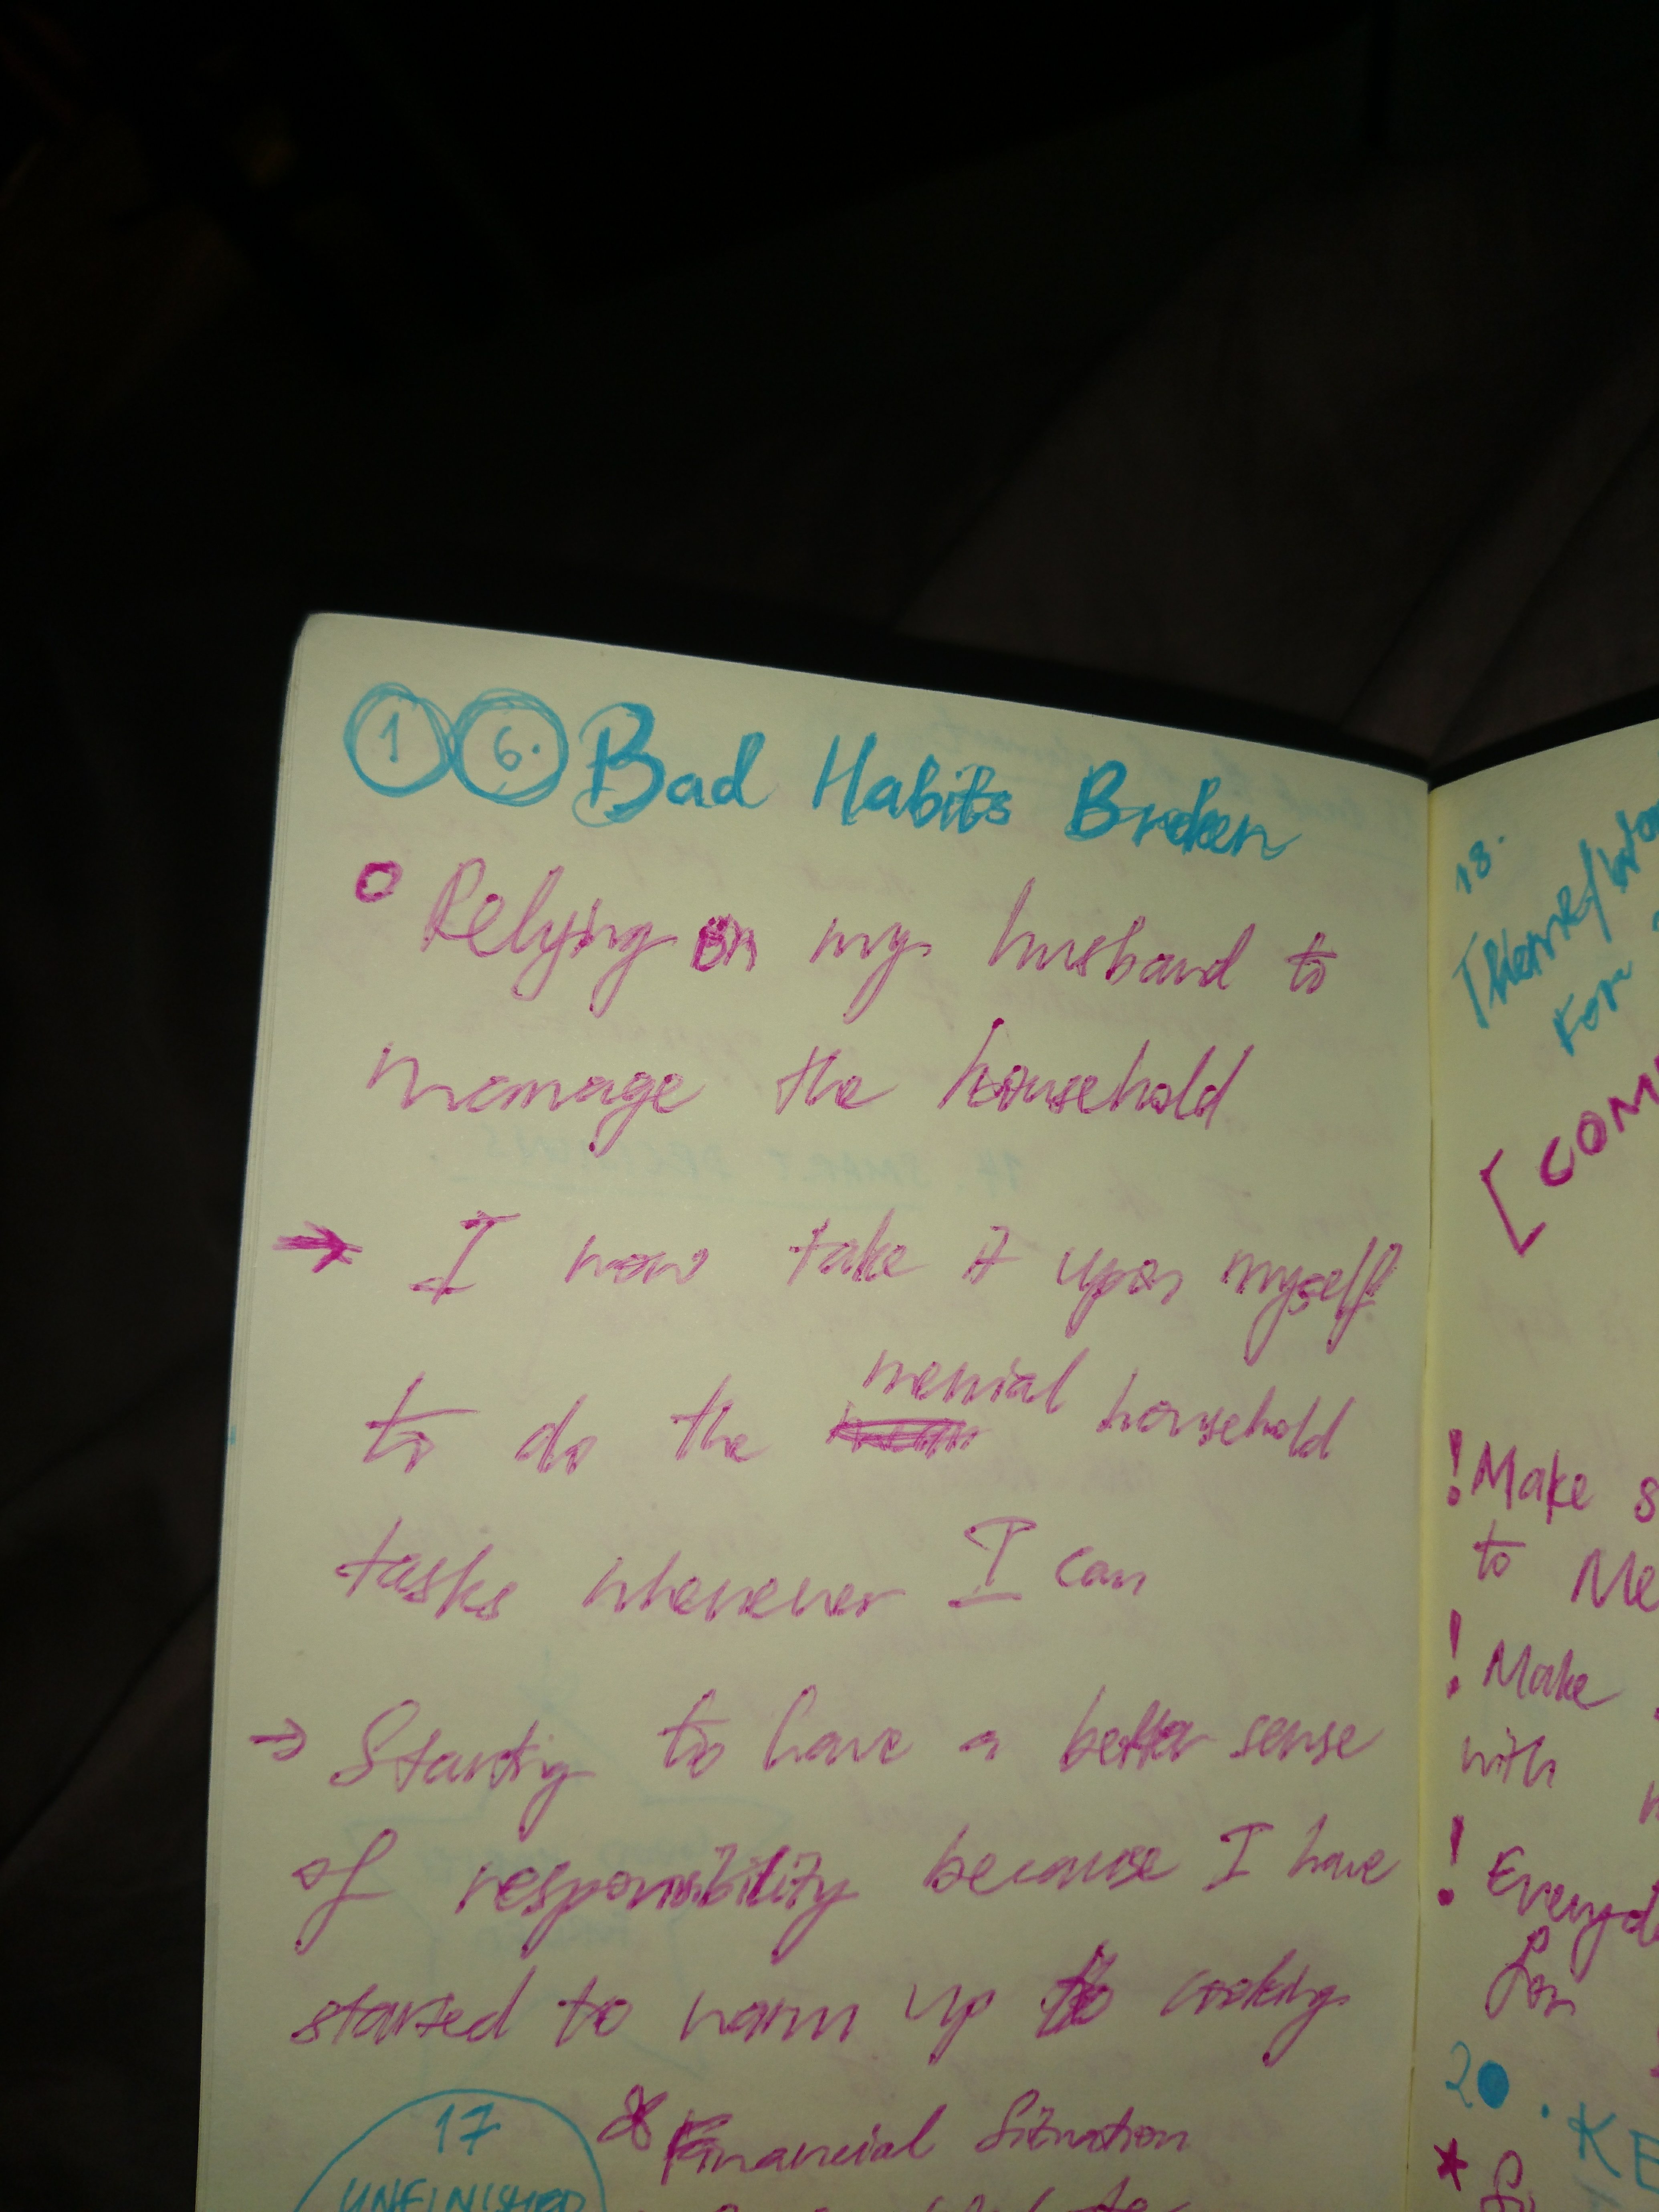 1 6. Bad Habits Broken
Relying on my husband to
manage the household
→ I now take it upon myself
menial
to do the household
tasks whenever I can
→ Starting to have a better sense
of responsibility because I have
started to warm up to cooking.
17
UNFINISHED
Financial Situation
18.
Theme/Wo
For
[COM
! Make s
to Me
! Make
with
! Everyd
for
20. KE